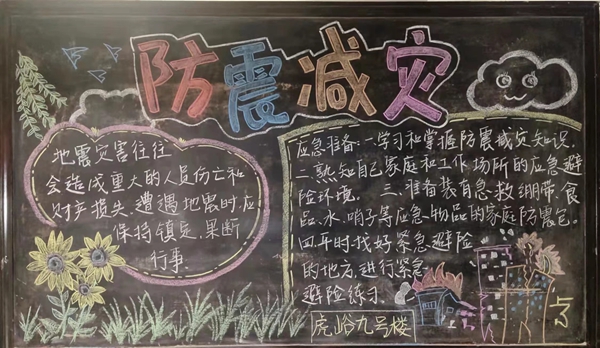 防震减灾
地震灾害往往
会造成重大的人员伤亡和
财产损失,遭遇地震时,应
保持镇定,果断
行事.
应急准备:一.学习和掌握防震减灾知识.
二.熟知自己家庭和工作场所的应急避
险环境. 三.准备装有急救绷带、食
品、水、哨子等应急物品的家庭防震包.
四平时找好紧急避险
的地方,进行紧急
避险练习.
虎峪九号楼